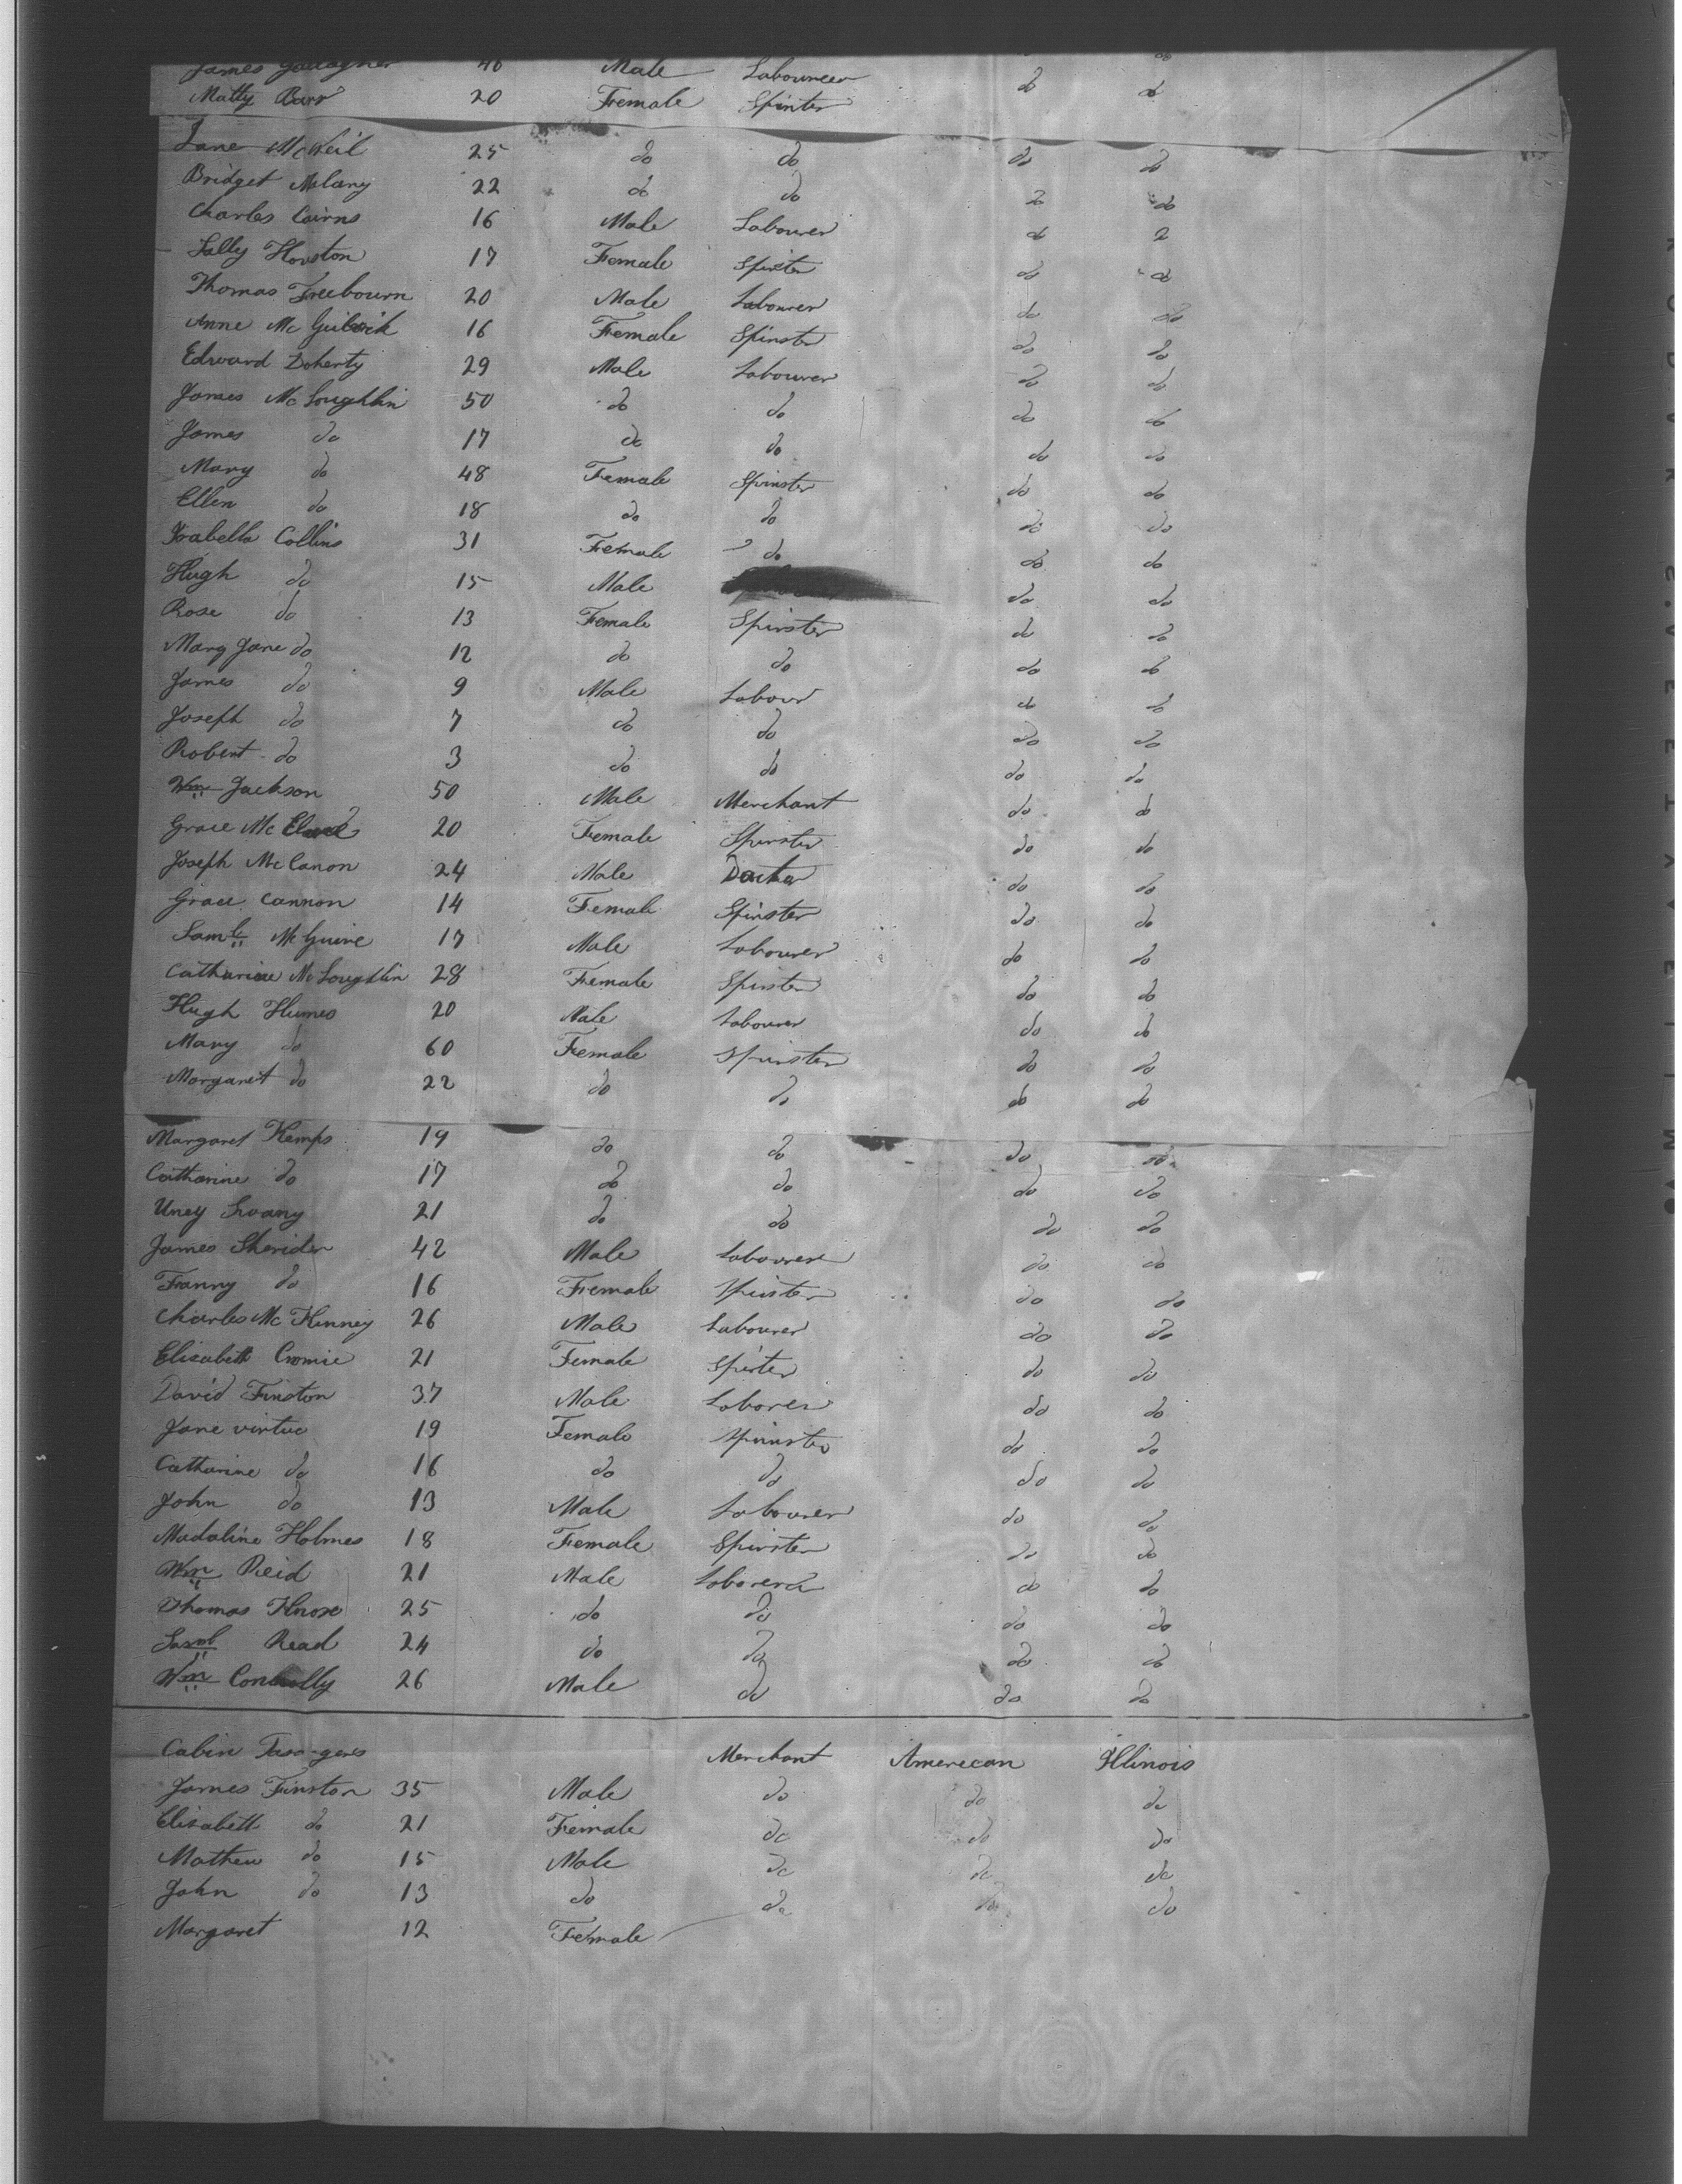 James Gallagher 46 Male Labourer do do
Matty Barr 20 Female Spinter do do
Jane McNeil 25 do do do do
Bridget 22 do do do do
Charles Cairns 16 Male Labourer do do
Sally Houston 17 Female Spister do do
Thomas Freebourn 20 Male Labourer do do
Anne Mc 16 Female Spinster do do
Edward Doherty 29 Male Labourer do do
James McLoughlin 50 do do do do
James do 17 do do do do
Mary do 48 Female Spinster do do
Ellen do 18 do do do do
Isabella Collins 31 Female do do do
Hugh do 15 Male do do
Rose do 13 Female Spinster do do
Mary Jane do 12 do do do do
James do 9 Male Labour do do
Joseph do 7 do do do do
Robert do 3 do do do do
Wm Jackson 50 Male Merchant do do
Grace Mc 20 Female Spinster do do
Joseph McCanon 24 Male Docter do do
Grace Cannon 14 Female Spinster do do
Saml McGuire 17 Male Labourer do do
Catharine McLoughlin 28 Female Spinster do do
Hugh Humes 20 Male Labourer do do
Mary do 60 Female Spinster do do
Margaret do 22 do do do do
Margaret Kemps 19 do do do do
Catharine do 17 do do do do
Uney 21 do do do do
James Sheriden 42 Male Labourer do do
Franny do 16 Female Spinster do do
Charles McKinney 26 Male Labourer do do
Elisabett Cromie 21 Female Spister do do
David Finston 37 Male Laborer do do
Jane virtue 19 Female Spinster do do
Catharine do 16 do do do do
John do 13 Male Labourer do do
Madaline Holmes 18 Female Spinster do do
Wm Reid 21 Male Laborer do do
Thomas Knose 25 do do do do
Saml Read 24 do do do do
Wm Connolly 26 Male do do do
Cabin Merchant Amerecan Illinois
James Finston 35 Male do do do
Elisabett do 21 Female do do do
Mathew do 15 Male do do do
John do 13 do do do do
Margaret 12 Female